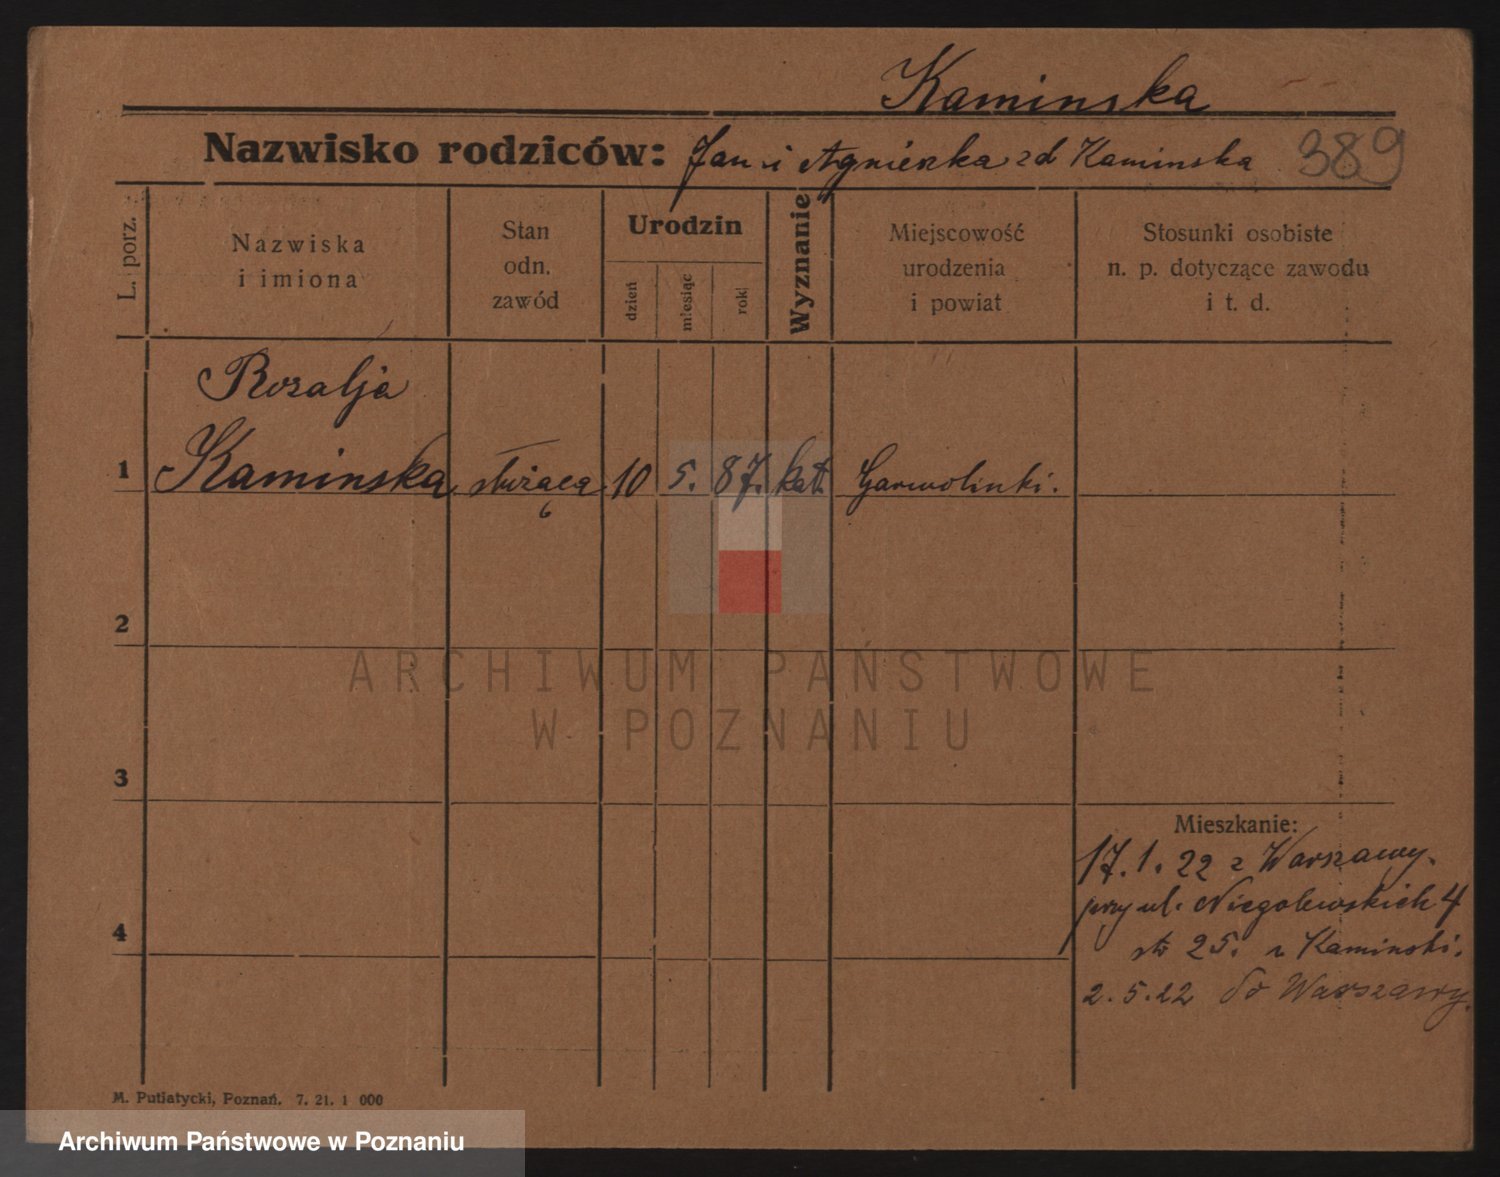 Kaminska
Nazwisko rodziców: Jan i Agnieszka zd Kaminska 389
L. porz.
Nazwiska
i imiona
Stan
odn.
zawód
Urodzin
dzień
miesiąc
rok
Wyznanie
Miejscowość
urodzenia
i powiat
Stosunki osobiste
n. p. dotyczące zawodu
i t. d.
Rozalja
1 Kaminska służąca 10 5. 87. kat. Garwolinki.
2
ARCHIWUM PAŃSTWOWE
W POZNANIU
3
Mieszkanie:
17.1.22 z Warszawy.
przy ul. Niegolewskich 4
25. Kaminski.
4
2.5.22 do Warszawy.
M. Putiatycki, Poznań. 7. 21. 1 000
Archiwum Państwowe w Poznaniu